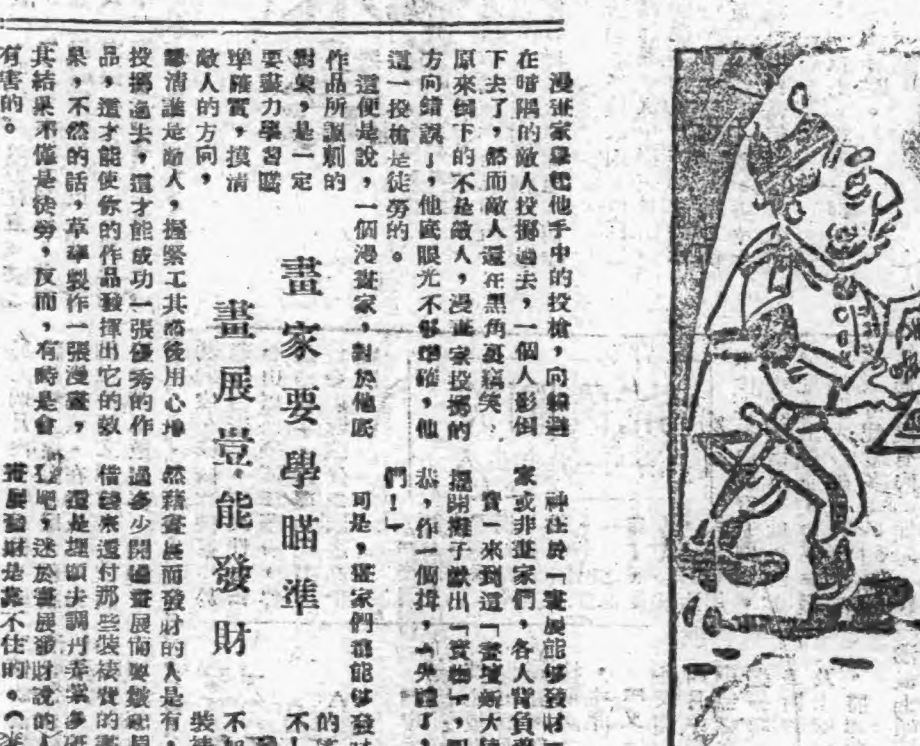 漫畫家舉起他手中的投槍，向躲避
在暗隅的敵人投擲過去，一個人影倒
下去了，然而敵人還在黑角裏竊笑，
原來倒下的不是敵人，漫畫家投擲的
方向錯誤！他底眼光不夠準確，他
這一投槍是徒勞的。
這便是說，一個漫畫家，對於他底
作品所諷刺的
對象，是一定
要盡力學習瞄
準確實，摸清
敵人的方向，
認清誰是敵人，握緊工具然後用心地
投擲過去，這才能成功一張優秀的作
品，這才能使你的作品發揮出它的效
果，不然的話，草率製作一張漫畫，
其結果不僅是徒勞，反而，有時是會
有害的。
畫家要學瞄準
畫展豈能發財
神往於「畫展能夠發財
家或非畫家們，各人背負
寶一來到這「畫壇新大陸
擺開攤子獻出「寶物」，
恭，作一個揖，
們！」
可是，畫家們都能夠發財
然藉畫展而發財的人是有，
過多少開過畫展而要
借錢來還付那些裝裱費的畫
還是埋頭去調丹弄
吧，迷於畫展發財說的人
畫展發財是靠不住的。
的
不
不
裝裱